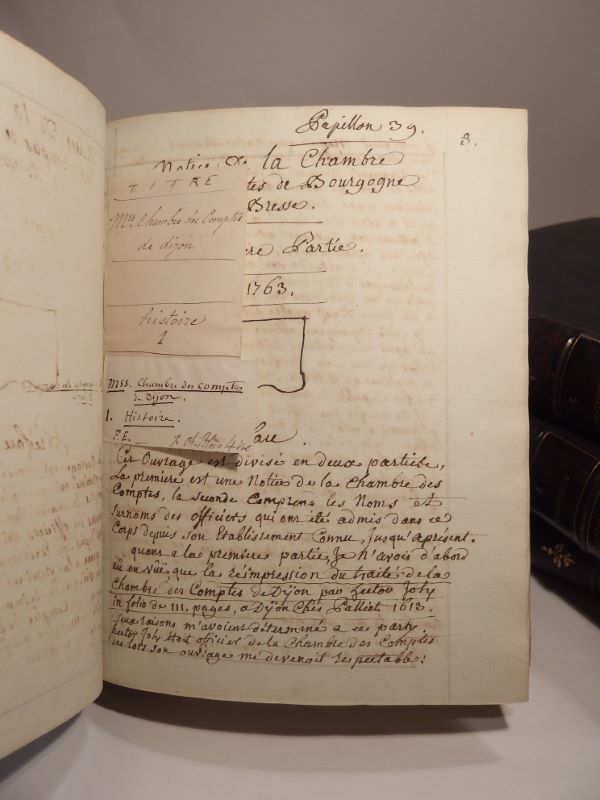 Papillon 39.
8.
Notice de la Chambre
tes de Bourgogne
Bresse.
ere Partie.
1763.
TITRE
Mss Chambre des Comptes
de dijon
histoire
1
Mss. Chambre des comptes
de Dijon.
1. Histoire.
P.E.
face.
Cet Ouvrage est divisé en deux partiees,
La premiere est une Notice de la Chambre des
Comptes, la seconde Comprend les Noms et
surnoms des officiers qui ont été admis dans ce
Corps depuis son Etablissement Connu, jusqu'apresent.
quant a la premiere partie, je n'avois d'abord
eü en vüe que la réimpression du traité de la
Chambre des Comptes de Dijon par hector Joly
in folio de 111. pages, a Dijon Chés Palliot 1613.
deux raisons m'avoient déterminé a ce party
hector Joly étoit officier de la Chambre des Comptes
des lors son ouvrage me devenoit respectable: